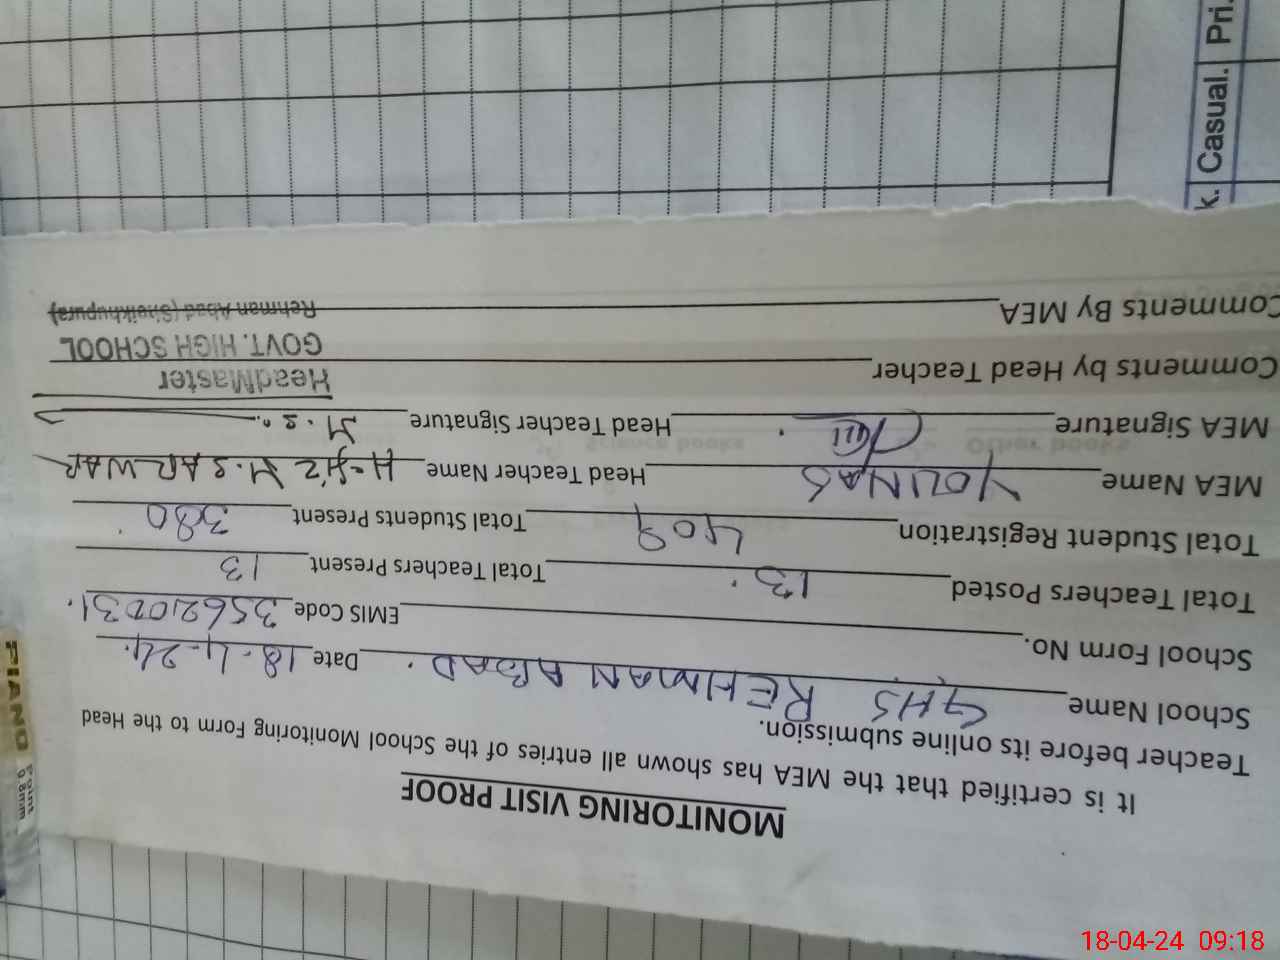 MONITORING VISIT PROOF
It is certified that the MEA has shown all entries of the School Monitoring Form to the Head
Teacher before its online submission.
School Name GHS REHMAN ABAD. Date 18-4-24.
School Form No. EMIS Code 35620031.
Total Teachers Posted 13 Total Teachers Present 13
Total Student Registration 409 Total Students Present 380
MEA Name YOUNAS Head Teacher Name Hafiz M. SARWAR
MEA Signature Head Teacher Signature
HeadMaster
Comments by Head Teacher GOVT. HIGH SCHOOL
Comments By MEA Rehman Abad (Sheikhupura)
k. Casual. Pri.
PIANO
Point
0.8mm
18-04-24 09:18